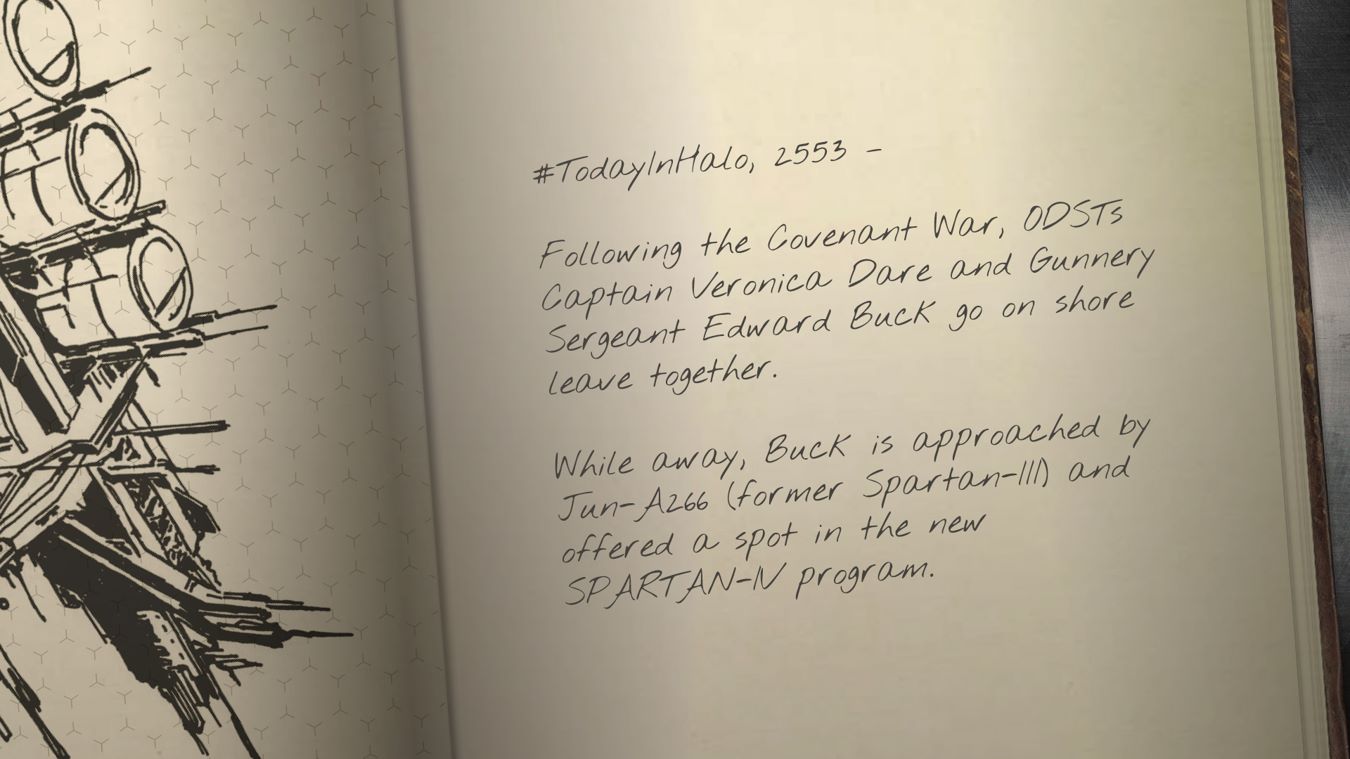 #TodayInHalo, 2553 -
Following the Covenant War, ODSTs
Captain Veronica Dare and Gunnery
Sergeant Edward Buck go on shore
leave together.
While away, Buck is approached by
Jun-A266 (former Spartan-III) and
offered a spot in the new
SPARTAN-IV program.